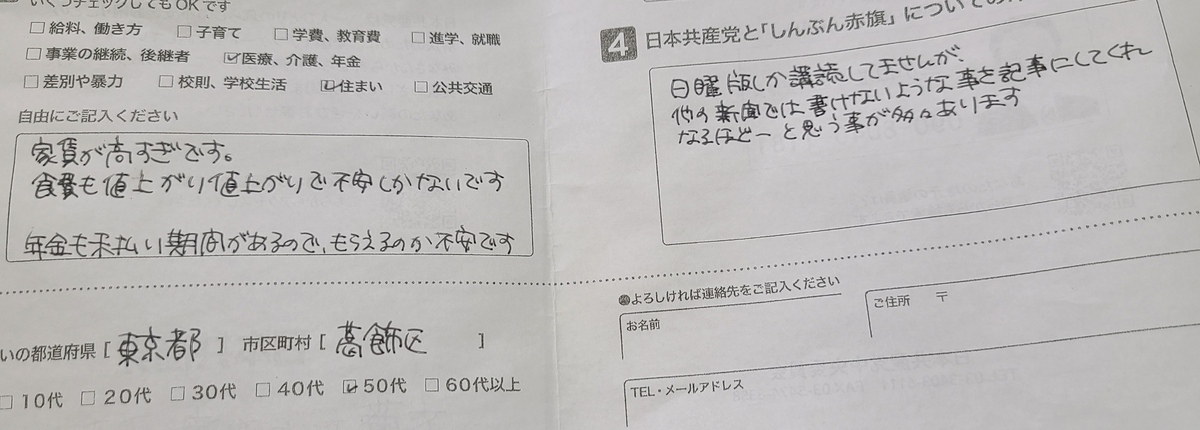 いくつチェックしてもOKです
□ 給料、働き方 □ 子育て □ 学費、教育費 □ 進学、就職
□ 事業の継続、後継者 ☑ 医療、介護、年金
□ 差別や暴力 □ 校則、学校生活 ☑ 住まい □ 公共交通
自由にご記入ください
家賃が高すぎです。
食費も値上がり値上がりで不安しかないです
年金も未払い期間があるので、もらえるのか不安です
いの都道府県 [ 東京都 ] 市区町村 [ 葛飾区 ]
□ 10代 □ 20代 □ 30代 □ 40代 ☑ 50代 □ 60代以上
4 日本共産党と「しんぶん赤旗」についての
日曜版しか講読してませんが、
他の新聞では書けないような事を記事にしてくれ
なるほどーと思う事が多々あります
よろしければ連絡先をご記入ください
お名前
ご住所 〒
TEL・メールアドレス